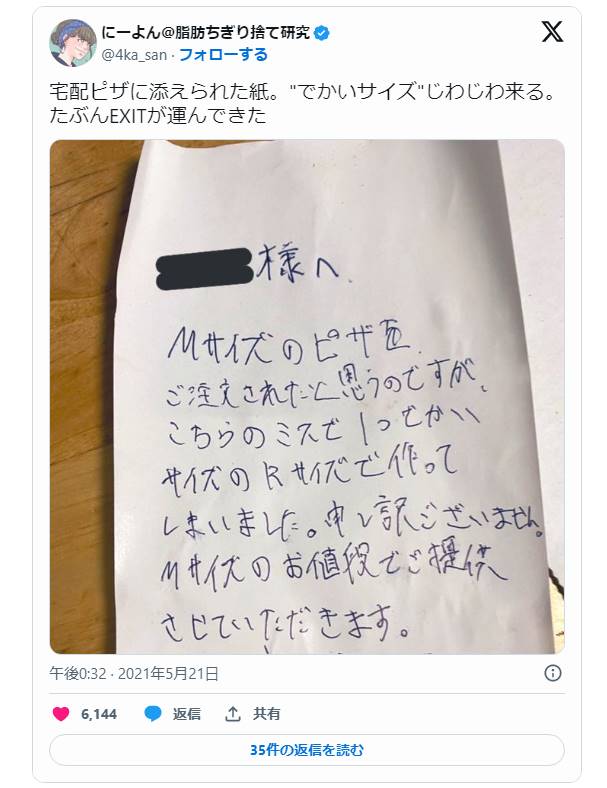 にーよん@脂肪ちぎり捨て研究
@4ka_san · フォローする
宅配ピザに添えられた紙。"でかいサイズ"じわじわ来る。
たぶんEXITが運んできた
様へ
Mサイズのピザを
ご注文されたと思うのですが、
こちらのミスで1つでかい
サイズのRサイズで作って
しまいました。申し訳ございません。
Mサイズのお値段でご提供
させていただきます。
午後0:32 · 2021年5月21日
6,144 返信 共有
35件の返信を読む